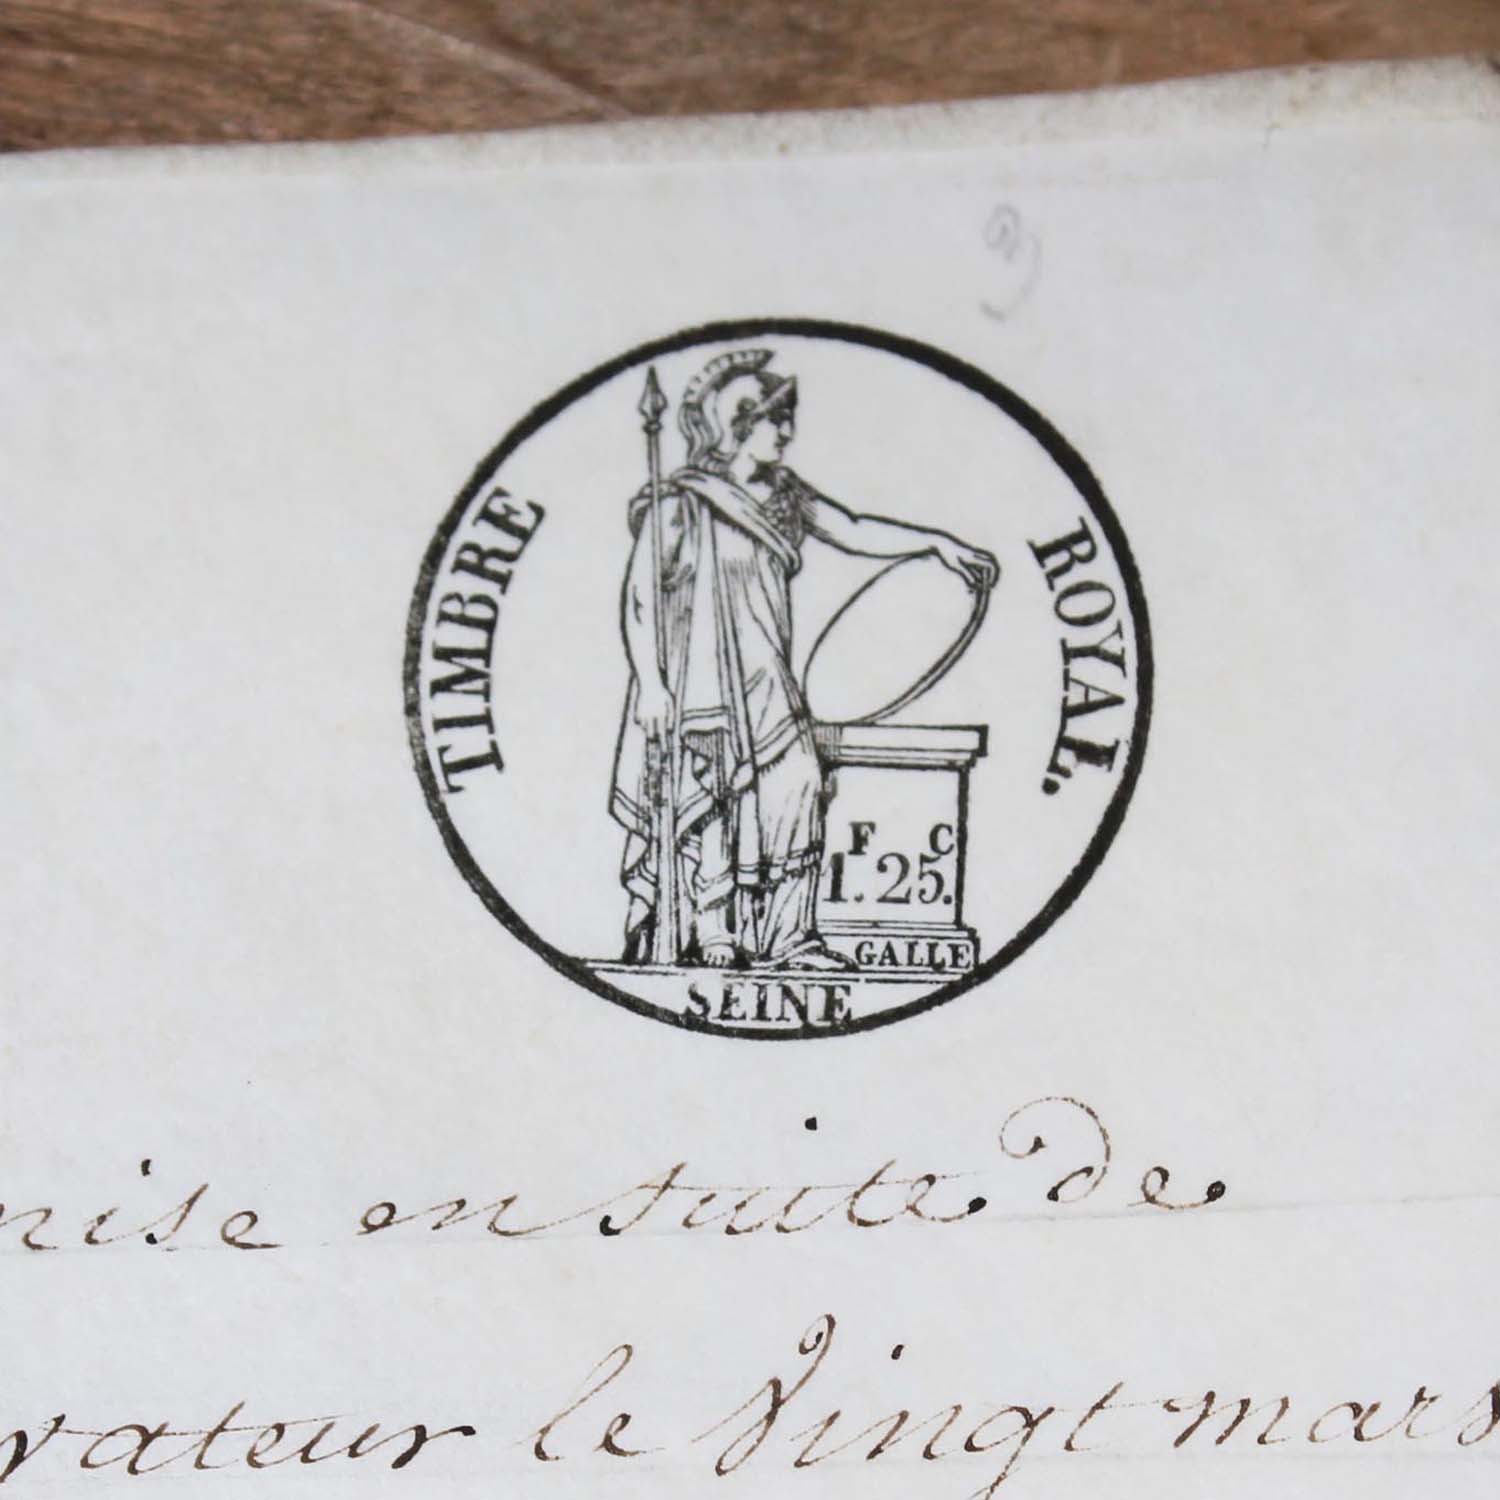 TIMBRE ROYAL.
F C
1. 25.
GALLE
SEINE
en suite de
le vingt mars